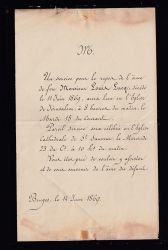 M.
Un service pour le repos de l'âme
de feu Monsieur Louis
le 11 Juin 1869, aura lieu en l'Église
de Jérusalem, à 9 heures du matin, le
Mardi 15 du courant.
Pareil service sera célébré en l'Église
Cathédrale de St Sauveur, le Mercredi
23 du dt à 10 hrs du matin.
Vous êtes prié de vouloir y assister
et de vous souvenir de l'âme du défunt.
Bruges, le 14 Juin 1869.